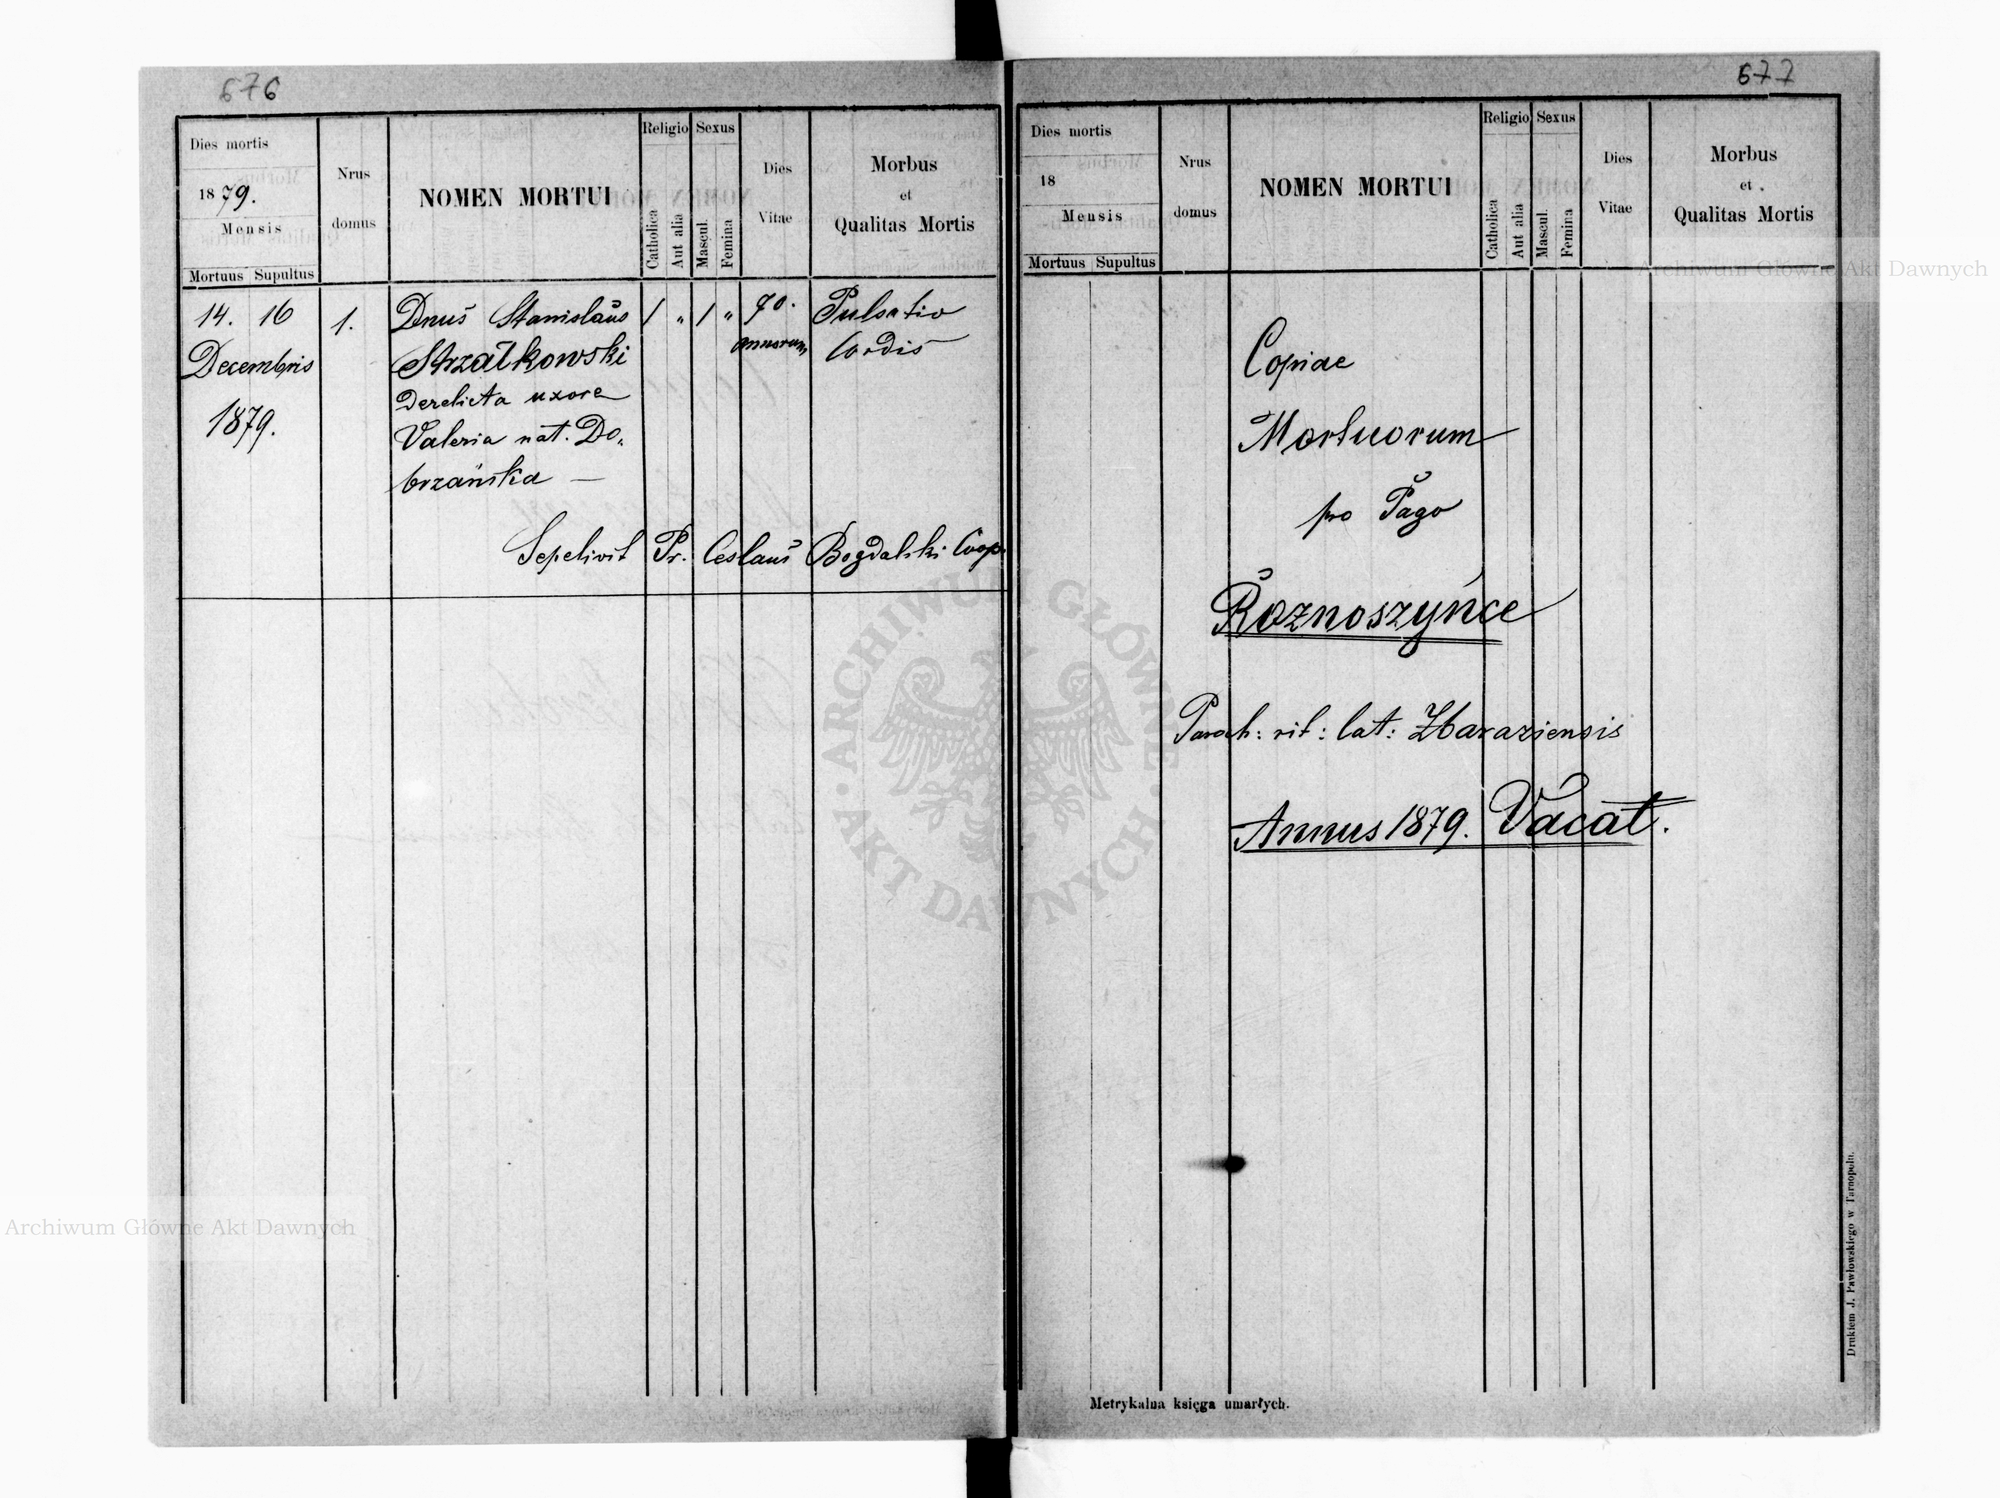 676
Dies mortis
1879.
Mensis
Mortuus Supultus
Nrus
domus
NOMEN MORTUI
Religio
Catholica
Aut alia
Sexus
Mascul.
Femina
Dies
Vitae
Morbus
et
Qualitas Mortis
14. 16
Decembris
1879.
1.
Dnus Stanislaus
Strzałkowski
Derelicta uxore
Valeria nat. Do-
brzańska —
1 " 1 "
70.
annorum
Pulsatio
Cordis
Sepelivit Pr. Ceslaus Bogdalski Coop.
677
Dies mortis
18
Mensis
Mortuus Supultus
Nrus
domus
NOMEN MORTUI
Religio
Catholica
Aut alia
Sexus
Mascul.
Femina
Dies
Vitae
Morbus
et
Qualitas Mortis
Copiae
Mortuorum
pro Pago
Roznoszyńce
Paroch: rit: lat: Zbaraziensis
Annus 1879. Vacat.
Metrykalna księga umarłych.
Drukiem J. Pawłowskiego w Tarnopolu.
Archiwum Główne Akt Dawnych
Archiwum Główne Akt Dawnych
ARCHIWUM GŁÓWNE
AKT DAWNYCH